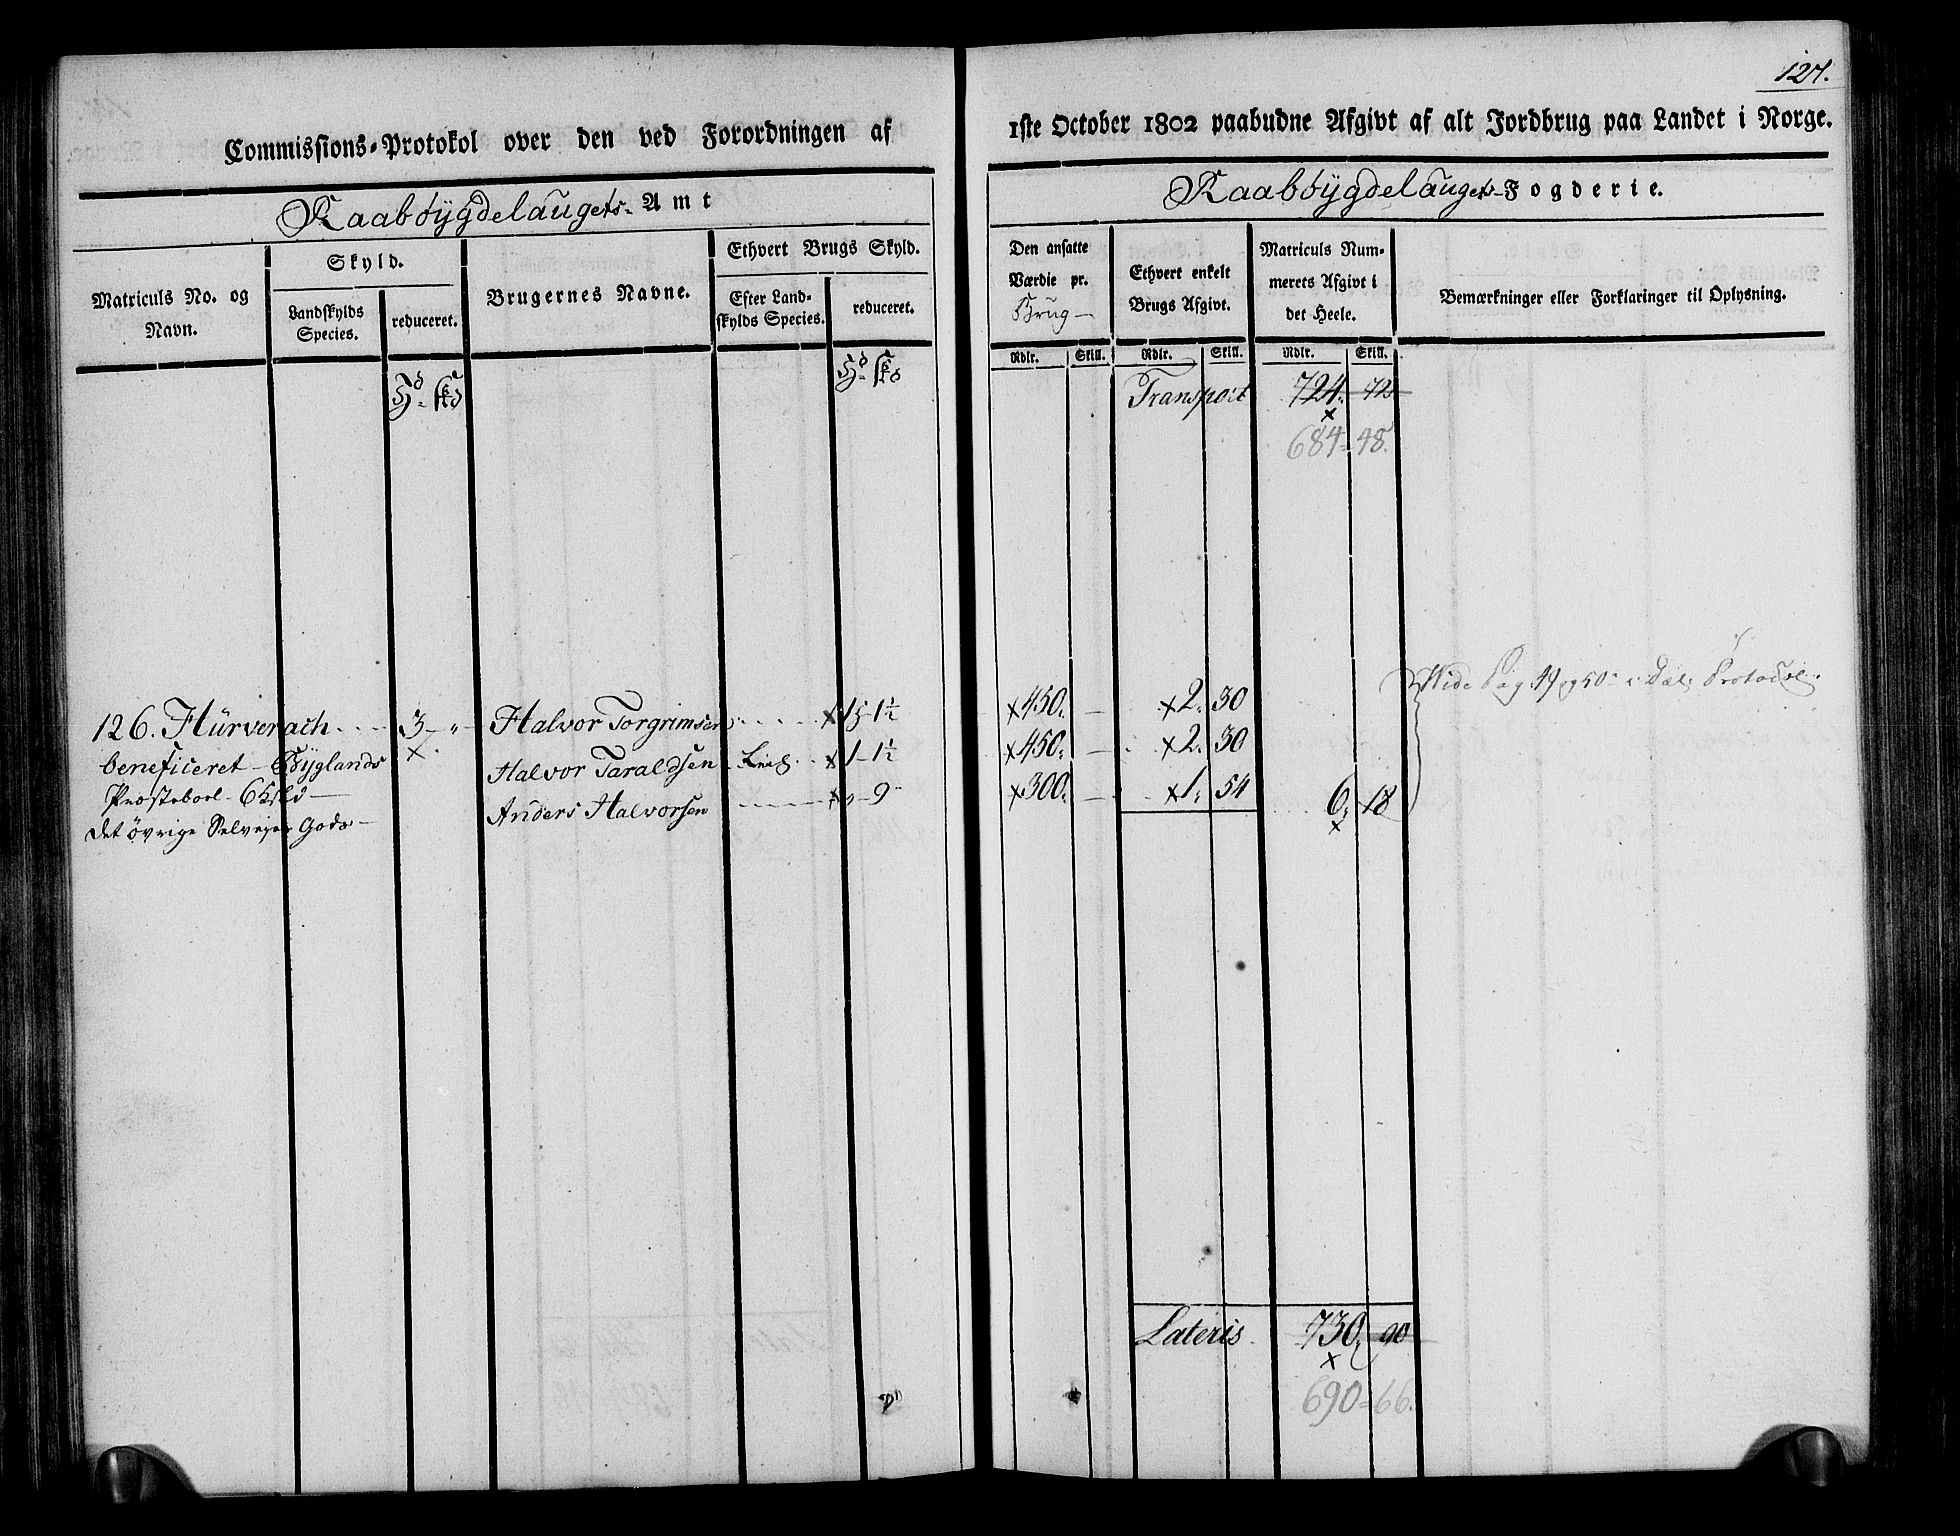 127.
Commissions-Protokol over den ved Forordningen af
1ste October 1802 paabudne Afgivt af alt Jordbrug paa Landet i Norge.
Raabøygdelaugets- Amt
Raabøygdelaugets- Fogderie.
Matriculs No. og Navn.
Skyld.
Landskylds Species.
reduceret.
Brugernes Navne.
Ethvert Brugs Skyld.
Efter Landskylds Species.
reduceret.
Den ansatte Værdie pr. Brug
Ethvert enkelt Brugs Afgivt.
Matriculs Nummerets Afgivt i det Heele.
Bemærkninger eller Forklaringer til Oplysning.
Rdlr. Skill. Rdlr. Skill. Rdlr. Skill.
Transport 724. 72
684 - 48.
126. Hürverach 3 - " - Halvor Torgrimsen 1 - 1½ 450. - 2. 30
beneficeret - Byglands Halvor Taraldsen 1 - 1½ 450. - 2. 30
Præsteboel - 6 Halvor
Anders Halvorsen 9 - 300. - 1. 54 6. 18
det øvrige Selveier Gods
Vide Pag 49 og 50 i Protocol
Lateris 730. 90
690 - 66.